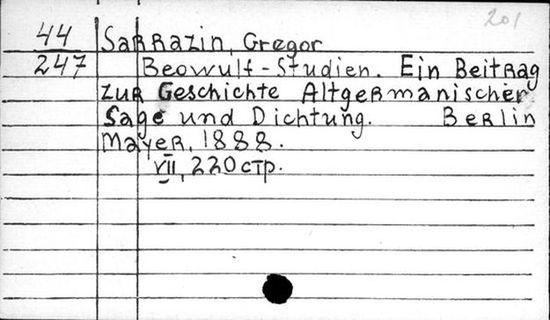 201
44 Sarrazin, Gregor
247 Beowulf-Studien. Ein Beitrag
zur Geschichte Altgermanischer
Sage und Dichtung. Berlin
Mayer, 1888.
VII, 220 стр.